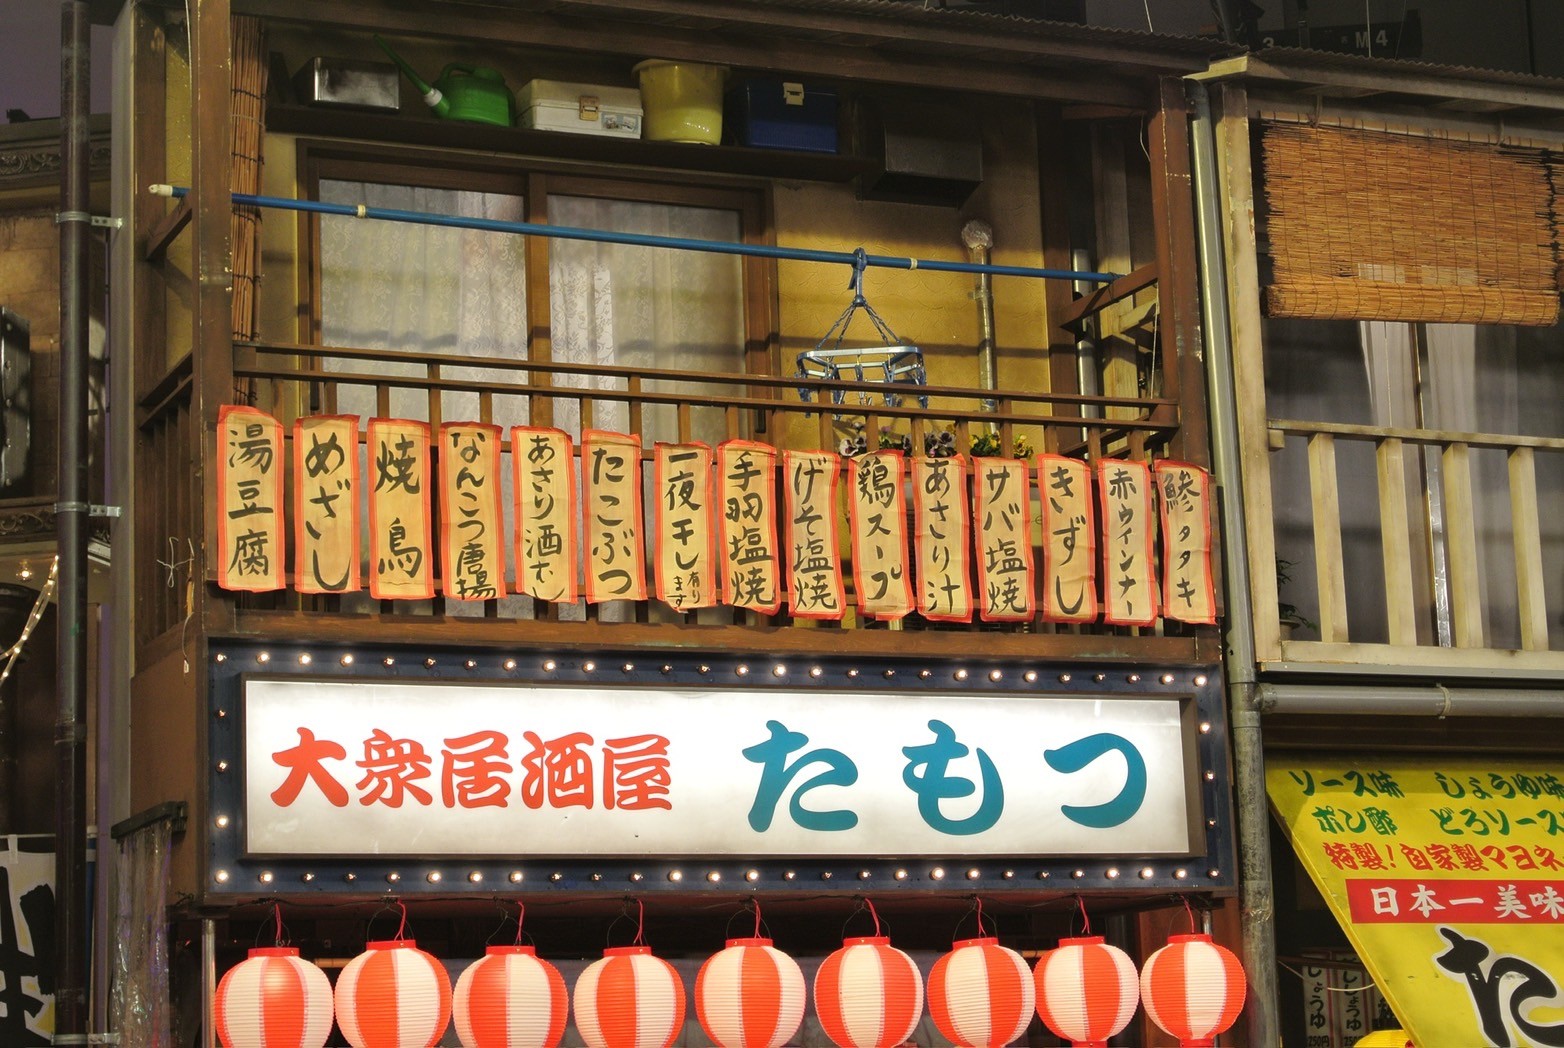 3 M4
湯豆腐
めざし
焼鳥
なんこつ唐揚
あさり酒むし
たこぶつ
一夜干し有ります
手羽塩焼
げそ塩焼
鶏スープ
あさり汁
サバ塩焼
きずし
赤ウインナー
鯵タタキ
大衆居酒屋 たもつ
ソース味 しょうゆ味
ポン酢 どろソース
特製!自家製マヨネ
日本一美味
た
しょうゆ
250円
しょうゆ
250